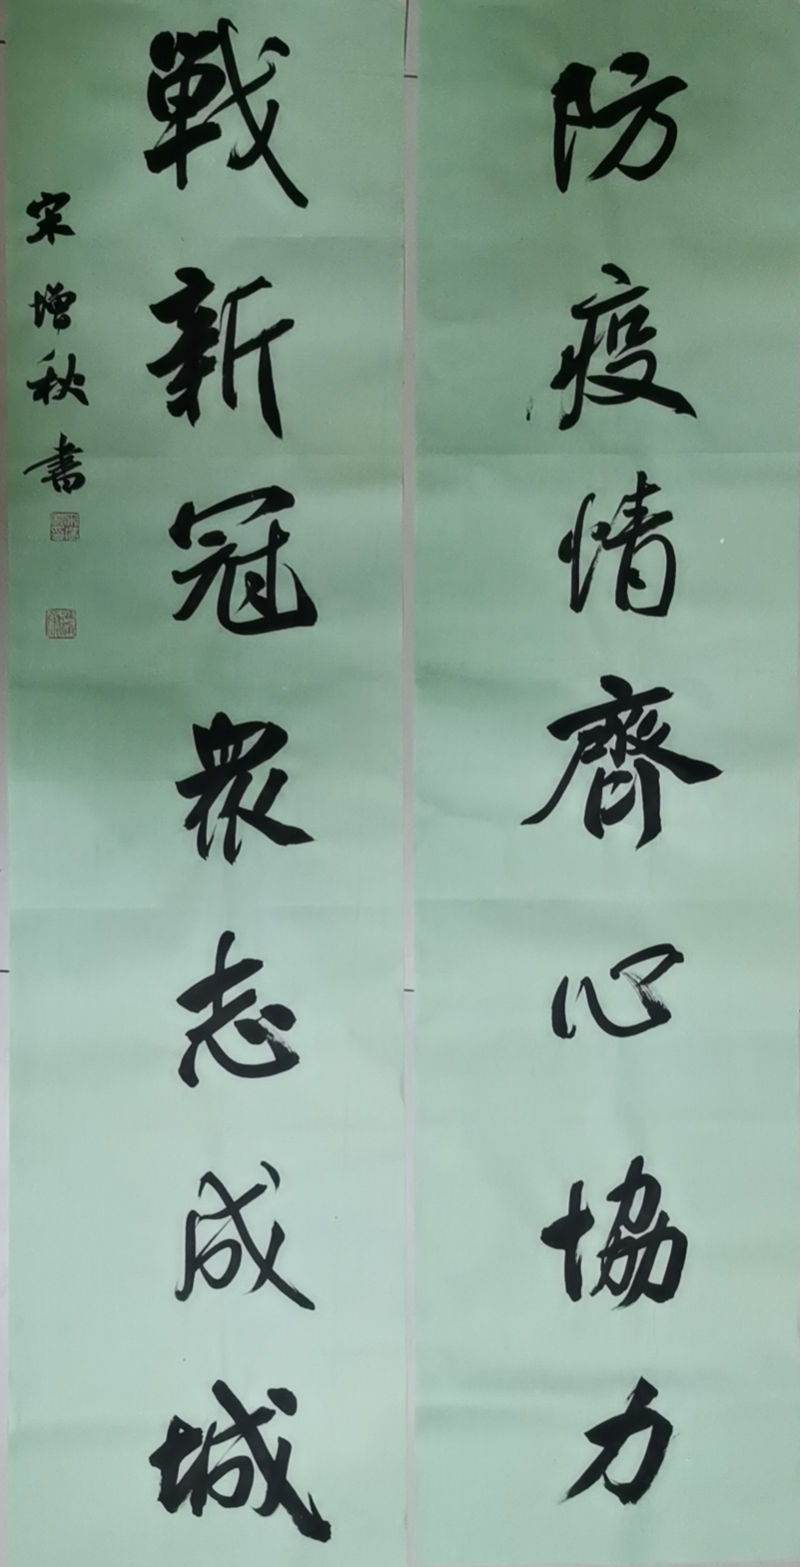 防疫情齊心協力
戰新冠眾志成城
宋增秋書